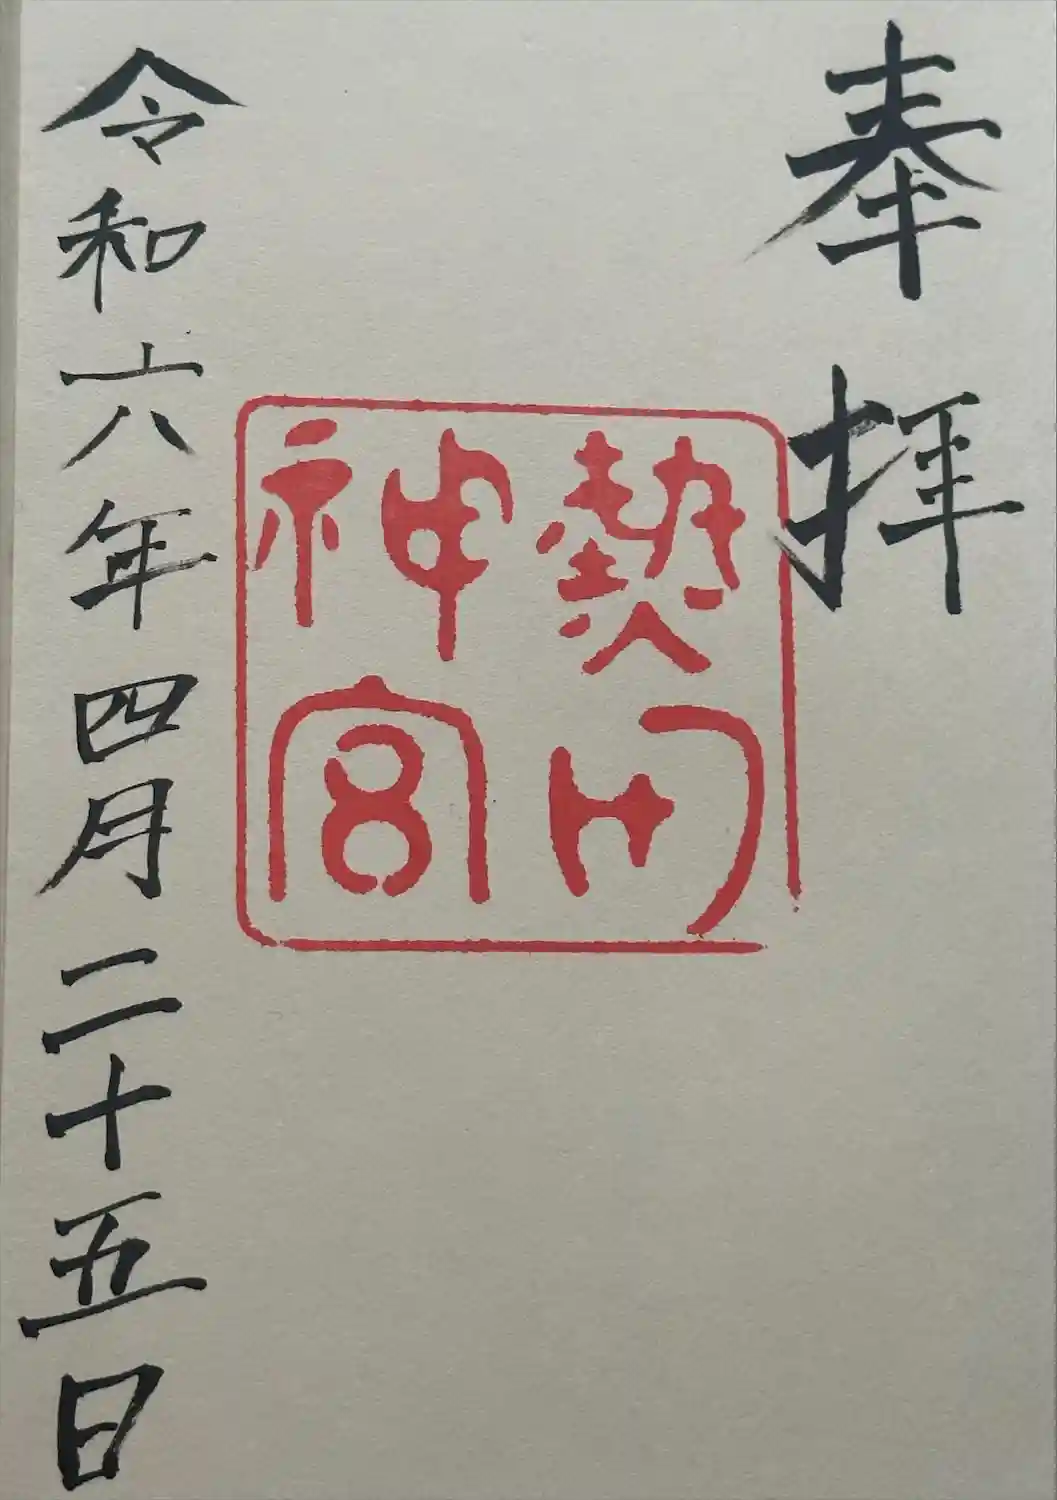 奉拝
熱田神宮
令和六年四月二十五日